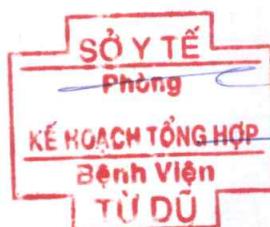 SỞ Y TẾ
Phòng
KẾ HOẠCH TỔNG HỢP
Bệnh Viện
TỪ DŨ